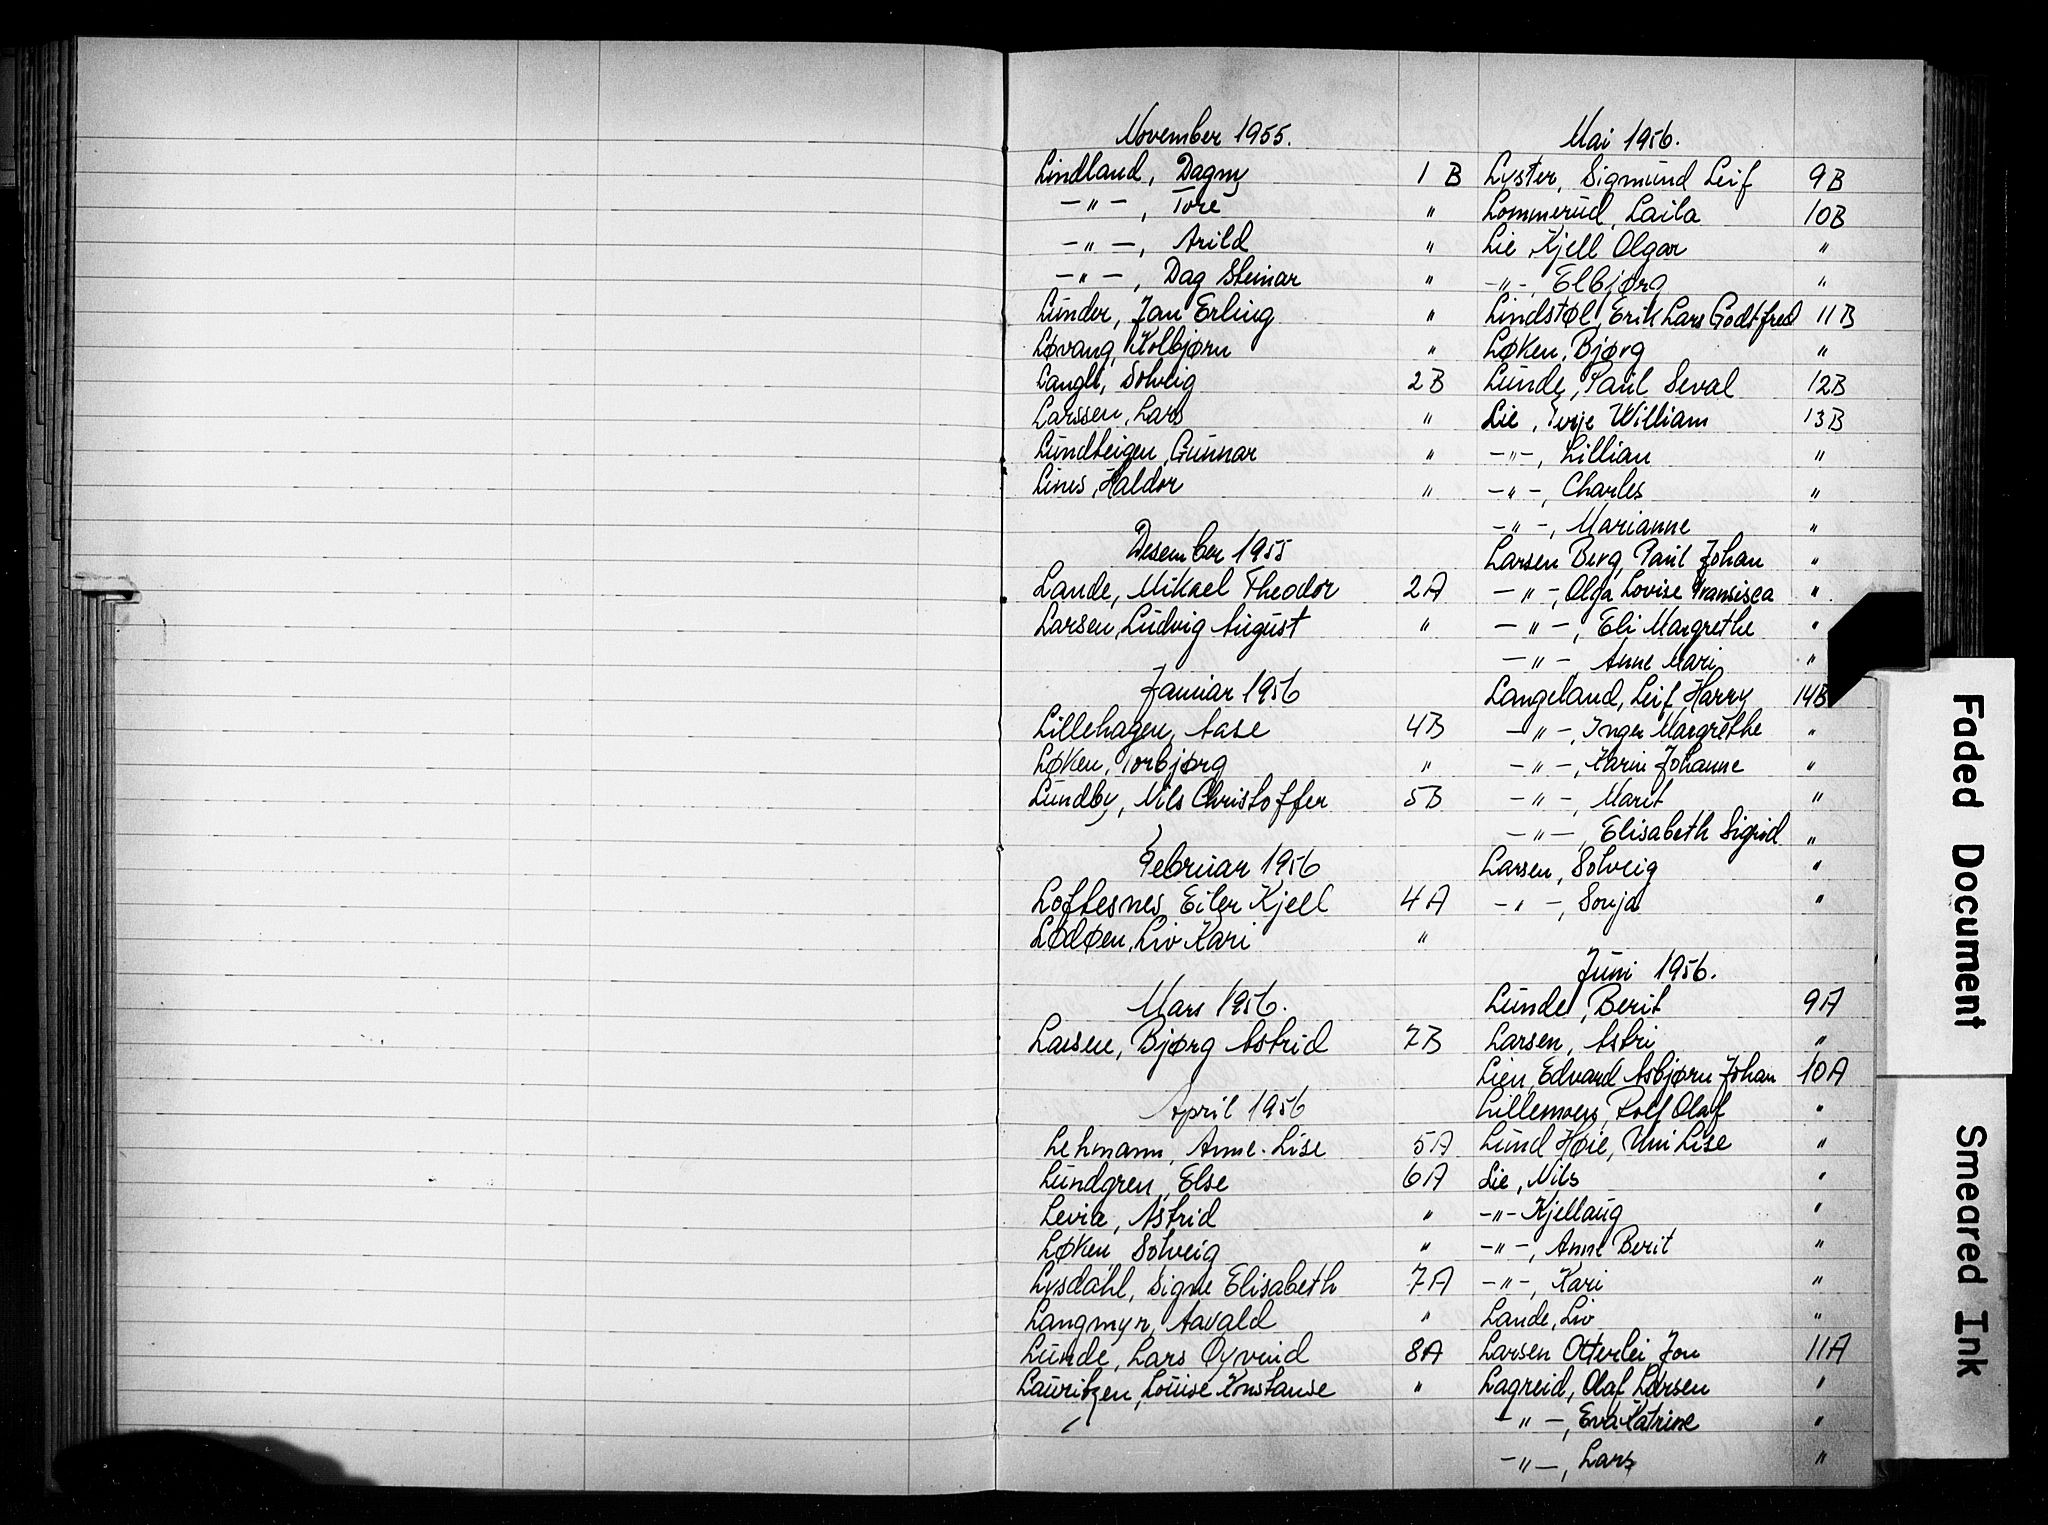 November 1955.
Lindland, Dagny 1 B
-"-, Tore "
-"-, Arild "
-"-, Dag Steinar "
Lunder, Jan Erling "
Løvang, Kolbjørn "
Langli, Solveig 2B
Larssen, Lars "
Lundteigen, Gunnar "
Lines, Haldor "
Desember 1955
Lande, Mikael Theodor 2A
Larsen, Ludvig August "
Januar 1956
Lillehagen, Aase 4B
Løken, Torbjørg "
Lundby, Nils Christoffer 5B
Februar 1956
Loftesnes, Eiler Kjell 4A
Lødøen, Liv Kari "
Mars 1956.
Larsen, Bjørg Astrid 7B
April 1956
Lehmann, Anne-Lise 5A
Lundgren, Else 6A
Levia, Astrid "
Løken Solveig "
Lysdahl, Signe Elisabeth 7A
Langmyr, Aavald "
Lunde, Lars Øyvind 8A
Lauritzen, Louise Konstanse "
Mai 1956.
Lyster, Sigmund Leif 9B
Lommerud, Laila 10B
Lie, Kjell Olgar "
-"-, Elbjørg "
Lindstøl, Erik Lars Godtfred 11B
Løken, Bjørg "
Lunde, Paul Seval 12B
Lie, Terje William 13B
-"-, Lillian "
-"-, Charles "
-"-, Marianne "
Larsen Berg, Paul Johan "
-"-, Olga Lovise Fransisca "
-"-, Eli Margrethe "
-"-, Anne Mari "
Langeland, Leif Harry 14B
-"-, Inger Margrethe "
-"-, Karin Johanne "
-"-, Marit "
-"-, Elisabeth Sigrid "
Larsen, Solveig "
-"-, Sonja "
Juni 1956.
Lunde, Berit 9A
Larsen, Astri "
Lien, Edvard Asbjørn Johan 10A
Lillemoen, Rolf Olaf "
Lund Høie, Uni Lise "
Lie, Nils "
-"- Kjellaug "
-"-, Anne Berit "
-"-, Kari "
Lande, Liv "
Larsen Otterlei, Jon 11A
Lagreid, Olaf Larsen "
-"-, Eva Katrine "
-"-, Lars "
Faded Document
Smeared Ink